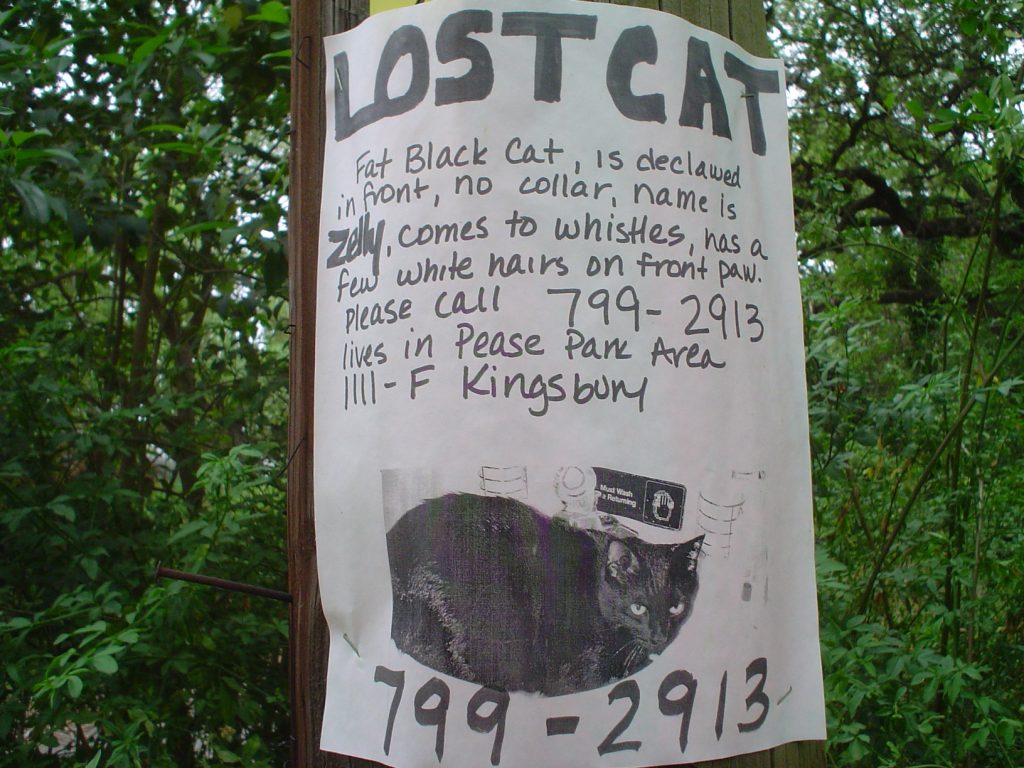 LOST CAT
Fat Black Cat, is declawed
in front, no collar, name is
Zelly, comes to whistles, has a
few white hairs on front paw.
Please call 799-2913
lives in Pease Park Area
1111-F Kingsbury
Must Wash
Returning
799-2913